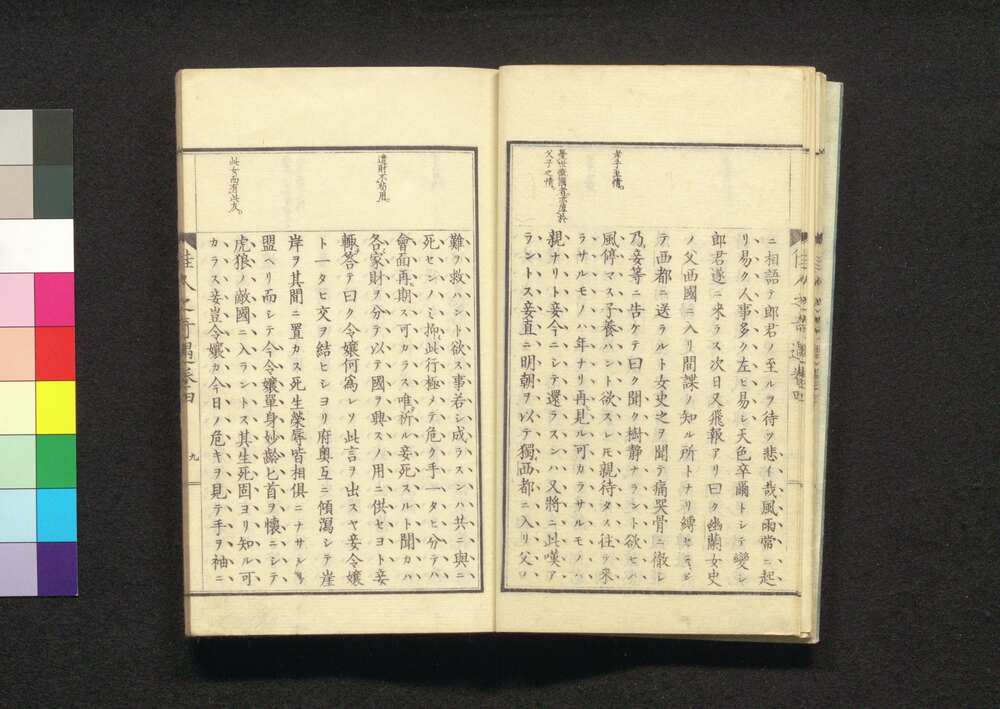 孝子之情。
憂世憤國者亦厚於
父子之情。
ニ相語テ郎君ノ至ルヲ待ツ悲イ哉風雨常ニ起
リ易ク人事多ク左ヒ易シ天色卒爾トシテ變シ
郎君遂ニ来ラス次日又飛報アリ曰ク幽蘭女史
ノ父西國ニ入リ間諜ノ知ル所トナリ縛セラレ
テ西都ニ送ラルト女史之ヲ聞テ痛哭骨ニ徹シ
乃妾等ニ告ケテ曰ク聞ク樹静ナラント欲セハ
風停マス子養ハント欲スレ𪜈親待タス往テ来
ラサルモノハ年ナリ再見ル可カラサルモノハ
親ナリト妾今ニシテ還ラスンハ又將ニ此嘆ア
ラントス妾直ニ明朝ヲ以テ獨西都ニ入リ父ノ
佳人之奇遇卷四
遺財不妨用。
此女而有此友。
難ヲ救ハント欲ス事若シ成ラスンハ共ニ與ニ
死センノミ抑此行極メテ危ク手一タヒ分テハ
會面再期ス可カラス唯祈ル妾死スルト聞カハ
各家財ヲ分テ以テ國ヲ興スノ用ニ供セヨト妾
輙答テ曰ク令孃何為レソ此言ヲ出スヤ妾令孃
ト一タヒ交ヲ結ヒシヨリ府奥互ニ傾瀉シテ崖
岸ヲ其間ニ置カス死生榮辱皆相俱ニナサルヲ
盟ヘリ而シテ今令孃單身妙齢匕首ヲ懐ニシテ
虎狼ノ敵國ニ入ラントス其生死固ヨリ知ル可
カラス妾豈令孃カ今日ノ危キヲ見テ手ヲ袖ニ
佳人之奇遇卷四
九